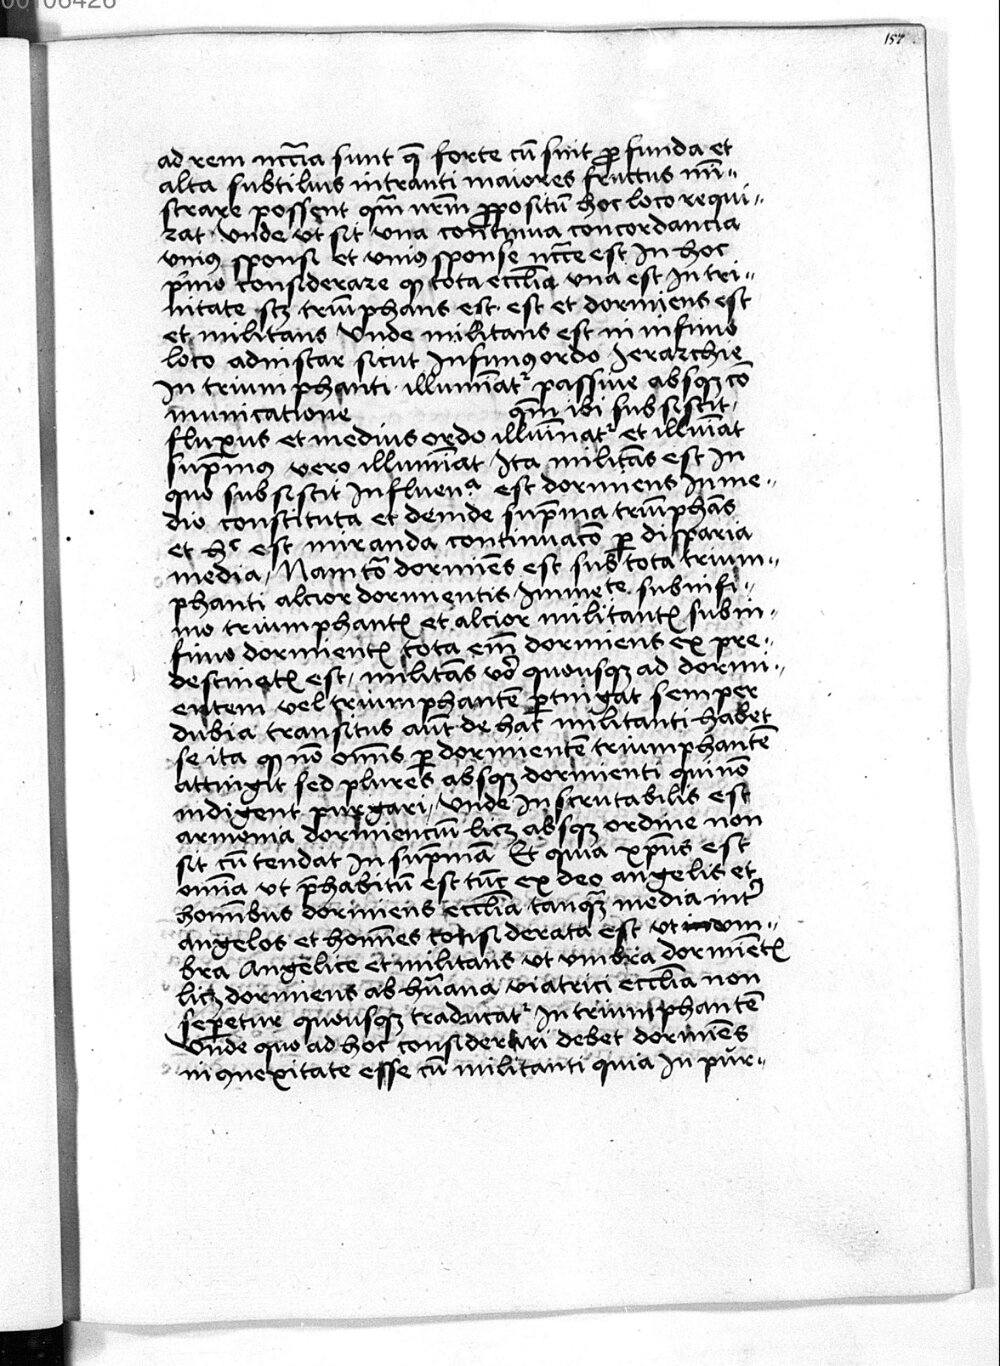 00106426
157
ad rem nccīa sunt q̄ forte cū sint ꝓfunda et
alta subtilius intranti maiores fructus mī-
strare possent qm̄ nrm̄ ꝓpositū hoc loco requi-
rat Unde ut sit una continua concordancia
unius sponsi et unius sponse ncc̄e est In hoc
pͥmo considerare ꝙ tota eccl̄ia una est In tri-
nitate scꝫ triūphans est est et dormiens est
et militans Unde militans est in infimo
loco ad instar sicut Infimus ordo Jerarchie
In triumphanti illumīatʳ passiue absqꝫ cō
municatione qm̄ ibi subsistit
fluxus et medius ordo illumīnatʳ et illumīat
sup̄mus vero illumīat Ita militās est In
quo subsistit Influenᵃ est dormiens In me-
dio constituta et deinde sup̄ma triūphās
et hᶜ est miranda continuacō ꝑ disparia
media / Nam tō dormiēs est sub tota trium-
phanti altior dormientis Immete sub infi-
mo triumphantꝭ et altior militantꝭ sub in-
fimo dormientꝭ tota em̄ dormiens ex pre-
destinatꝭ est / militās v̄o quousqꝫ ad dormi-
entem vel triumphantē ꝑtingat semper
dubia transitus aūt de hac militanti habet
se ita ꝙ nō om̄s ꝑ dormientē triumphantē
attingit sed plures absqꝫ dormienti qui nō
indigent purgari / Unde Inscrutabilis est
armonia dormienciū licꝫ absqꝫ ordine non
sit cū tendat In sup̄mā Et quia xp̄us est
omīa ut p̄habitū est tūc ex deo angelis et
homībus dormiens eccl̄ia tanqꝫ media int̄
angelos et homīes considerata est ut um-
bra Angelice et militans ut umbra dormiētꝭ
licꝫ dormiens ab hūana viatrici eccl̄ia non
seꝑetur quousqꝫ traducatʳ In triumphantē
Unde quo ad hoc considerari debet dormiēs
in qnexitate esse cū militanti quia In pur-